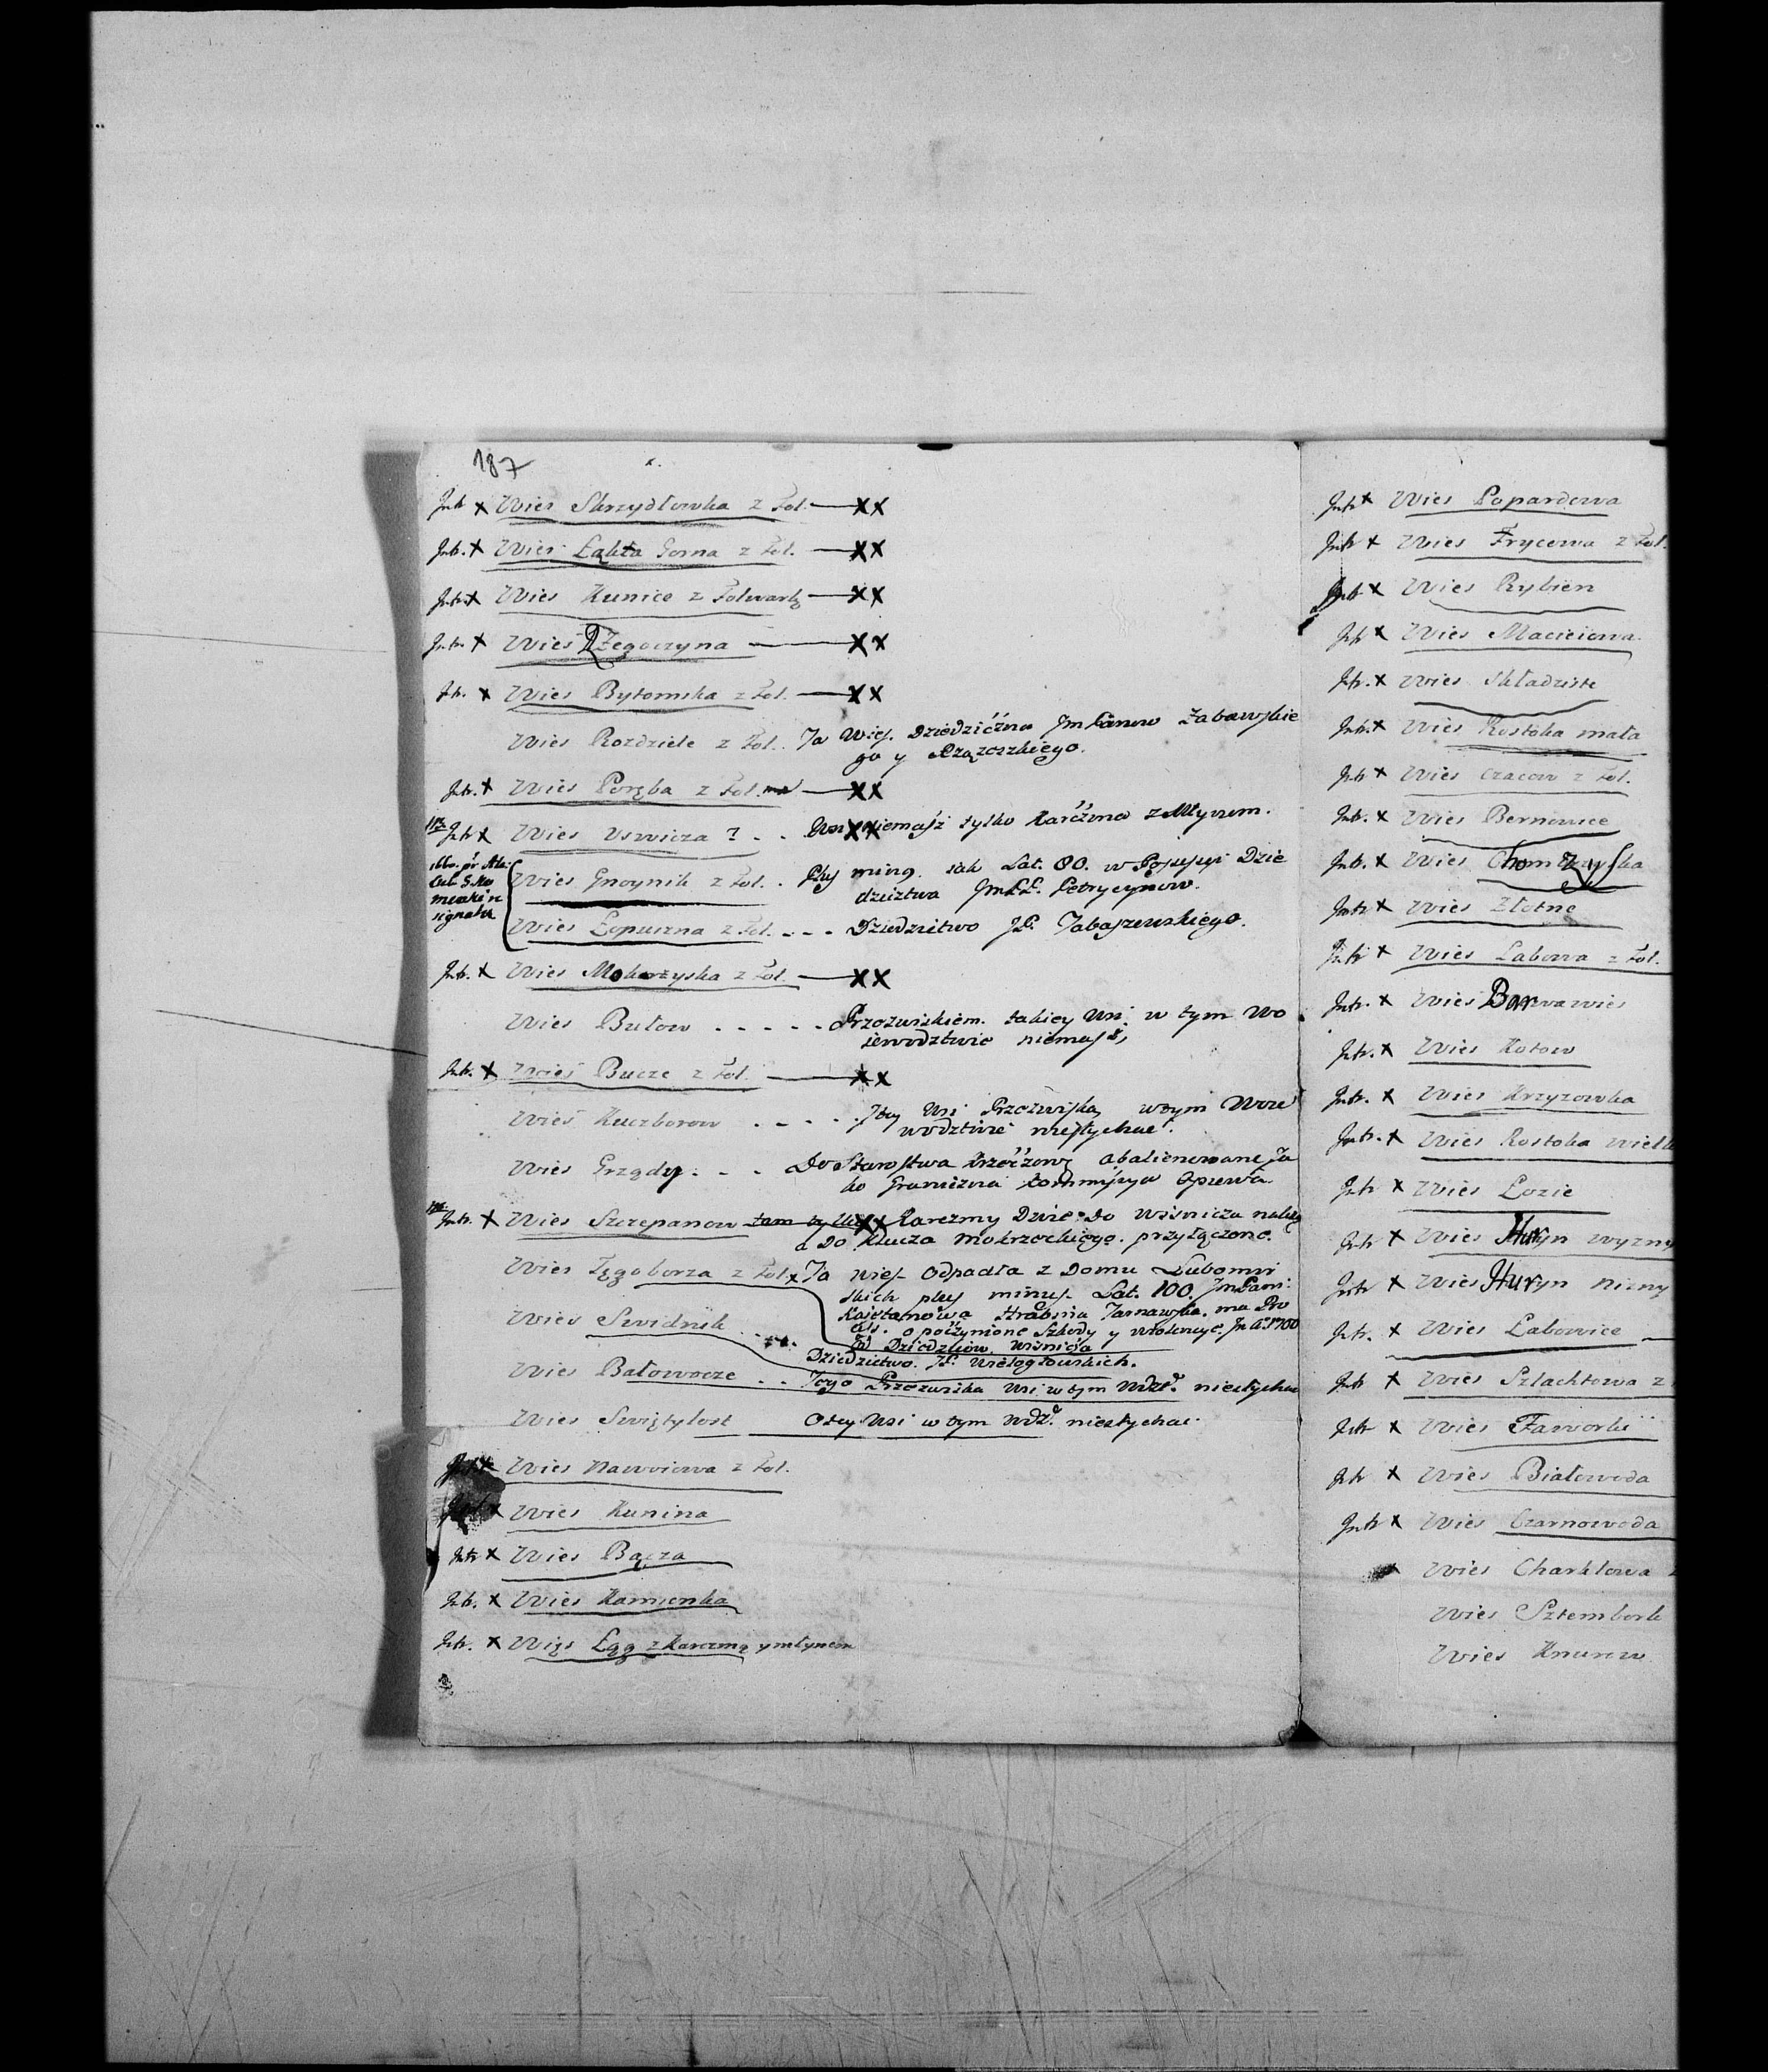 187
Intr × Wies Skrzydłowka z Fol. — ××
Intr. × Wies Łąkta Gorna z Fol. — ××
Intr. × Wies Kunice z Folwark — ××
Intr. × Wies Zegoczyna — ××
Intr. × Wies Bytomska z Fol. — ××
Wies Rozdziele z Fol. Ta Wieś. Dziedziczna Im Panow Zabawskie
go y
Intr. × Wies Poręba z Fol. — ××
Intr × Wies Uswicza ? . . Wsi niemasz tylko Karczma z Młynem.
Wies Gnoynik z Fol. . Plus minus iak Lat. 80. w Possessyi Dzie
dzictwa Im PP. Petrycynow.
Wies Łopuszna z Fol. . . . Dziedzictwo JP. Tabaszewskiego.
Intr. × Wies Mokrzyska z Fol. — ××
Wies Bułow . . . . . Przezwiskiem takiey Wsi w tym Wo
iewodztwie niemasz,
Intr. × Wies Bucze z Fol. — ××
Wies Kuczborow . . . . Tey Wsi Przezwiska wtym Woie
wodztwie niesłychać.
Wies Grzędy . . . Do Starostwa abalienowane Ja
ko Graniczna Kommissya Opiewa.
Intr. × Wies Szczepanow tam tylko ×× Karczmy Dwie Do Wisnicza należą
a Do Klucza Mokrzeckiego. przyłączone.
Wies Tęgoborza z Fol. × Ta wieś Odpadła z Domu Lubomir
skich plus minus Lat. 100. Im Pani
Kaietanowa Hrabina Tarnawska. ma Pro
cess. o poczynione Szkody y wiolencye. In Ao. 1700
Od Dziedzicow. Wisnicza
Wies Swidnik . . . . Dziedzictwo. JP. Wielogłowskich.
Wies Bałoworze . . Tego Przezwiska Wsi w tym Wdzt. niesłychać
Wies Swiętylost O tey Wsi w tym Wdz. niesłychać.
Wies Nawoiowa z Fol.
× Wies Kunina
Intr × Wies Bącza
Intr. × Wies Kamionka
Intr. × Wies Łęg z Karczmą y młynem
Intr × Wies Popardowa
Intr × Wies Frycowa z Fol.
Intr × Wies Rybien
Intr × Wies Macieiowa.
Intr. × Wies Składziste
Intr. × Wies Rostoka mała
Intr × Wies Czacow z Fol.
Intr. × Wies Bernowice
Intr. × Wies
Intr × Wies Złotne
Intr × Wies Łabowa z Fol.
Intr. × Wies Barnawies
Intr. × Wies Kotow
Intr. × Wies Krzyzowka
Intr. × Wies Rostoka wielk
Intr × Wies Łozie
Intr × Wies Huryn wyzny
Intr × Wies Huryn nizny
Intr. × Wies Łabowice —
Intr × Wies Szlachtowa z
Intr × Wies Jaworki
Intr × Wies Białowoda
Intr × Wies Czarnowoda
Wies Charklowa
Wies Sztembark
Wies Knurow